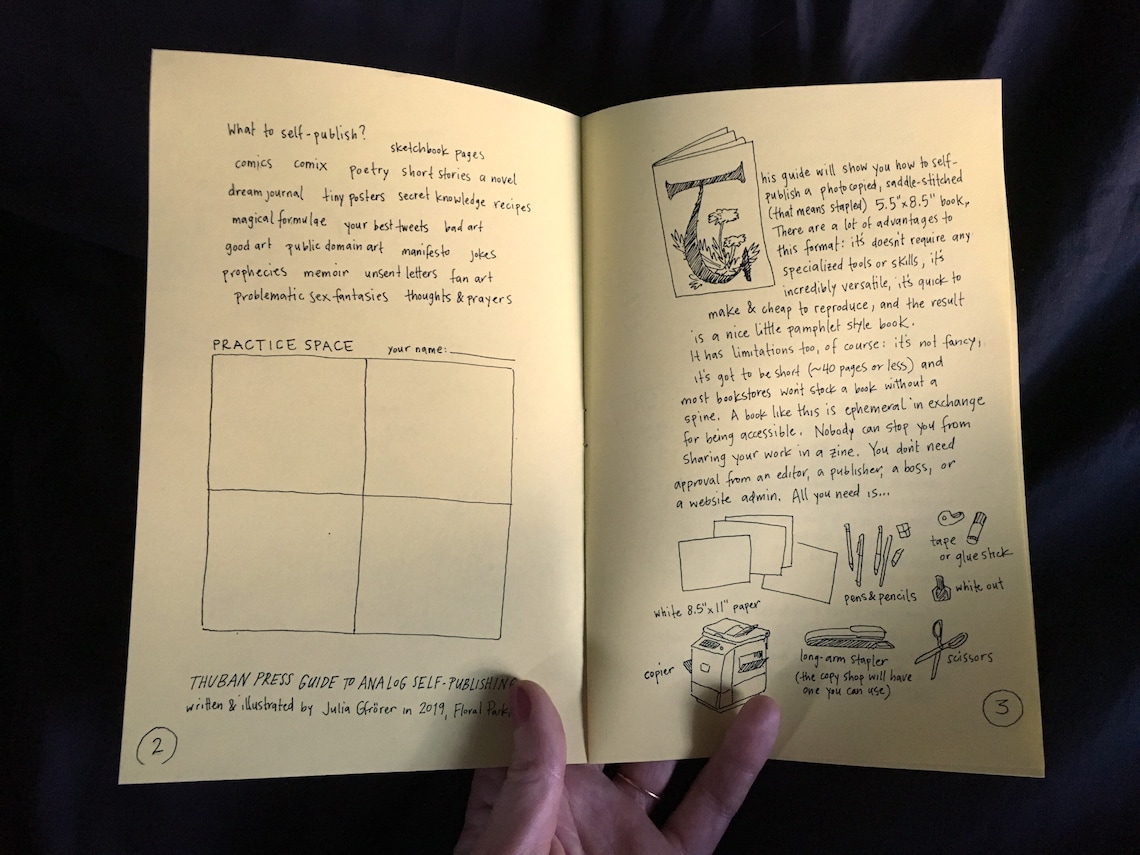 What to self-publish?
sketchbook pages
comics comix poetry short stories a novel
dream journal tiny posters secret knowledge recipes
magical formulae your best tweets bad art
good art public domain art manifesto jokes
prophecies memoir unsent letters fan art
problematic sex fantasies thoughts & prayers
PRACTICE SPACE your name:
THUBAN PRESS GUIDE TO ANALOG SELF-PUBLISHING
written & illustrated by Julia Gfrörer in 2019, Floral Park,
2
This guide will show you how to self-
publish a photocopied, saddle-stitched
(that means stapled) 5.5"x8.5" book.
There are a lot of advantages to
this format: it's doesn't require any
specialized tools or skills, it's
incredibly versatile, it's quick to
make & cheap to reproduce, and the result
is a nice little pamphlet style book.
It has limitations too, of course: it's not fancy,
it's got to be short (~40 pages or less) and
most bookstores won't stock a book without a
spine. A book like this is ephemeral in exchange
for being accessible. Nobody can stop you from
sharing your work in a zine. You don't need
approval from an editor, a publisher, a boss, or
a website admin. All you need is...
white 8.5"x11" paper
pens & pencils
tape
or glue stick
white out
copier
long-arm stapler
(the copy shop will have
one you can use)
scissors
3